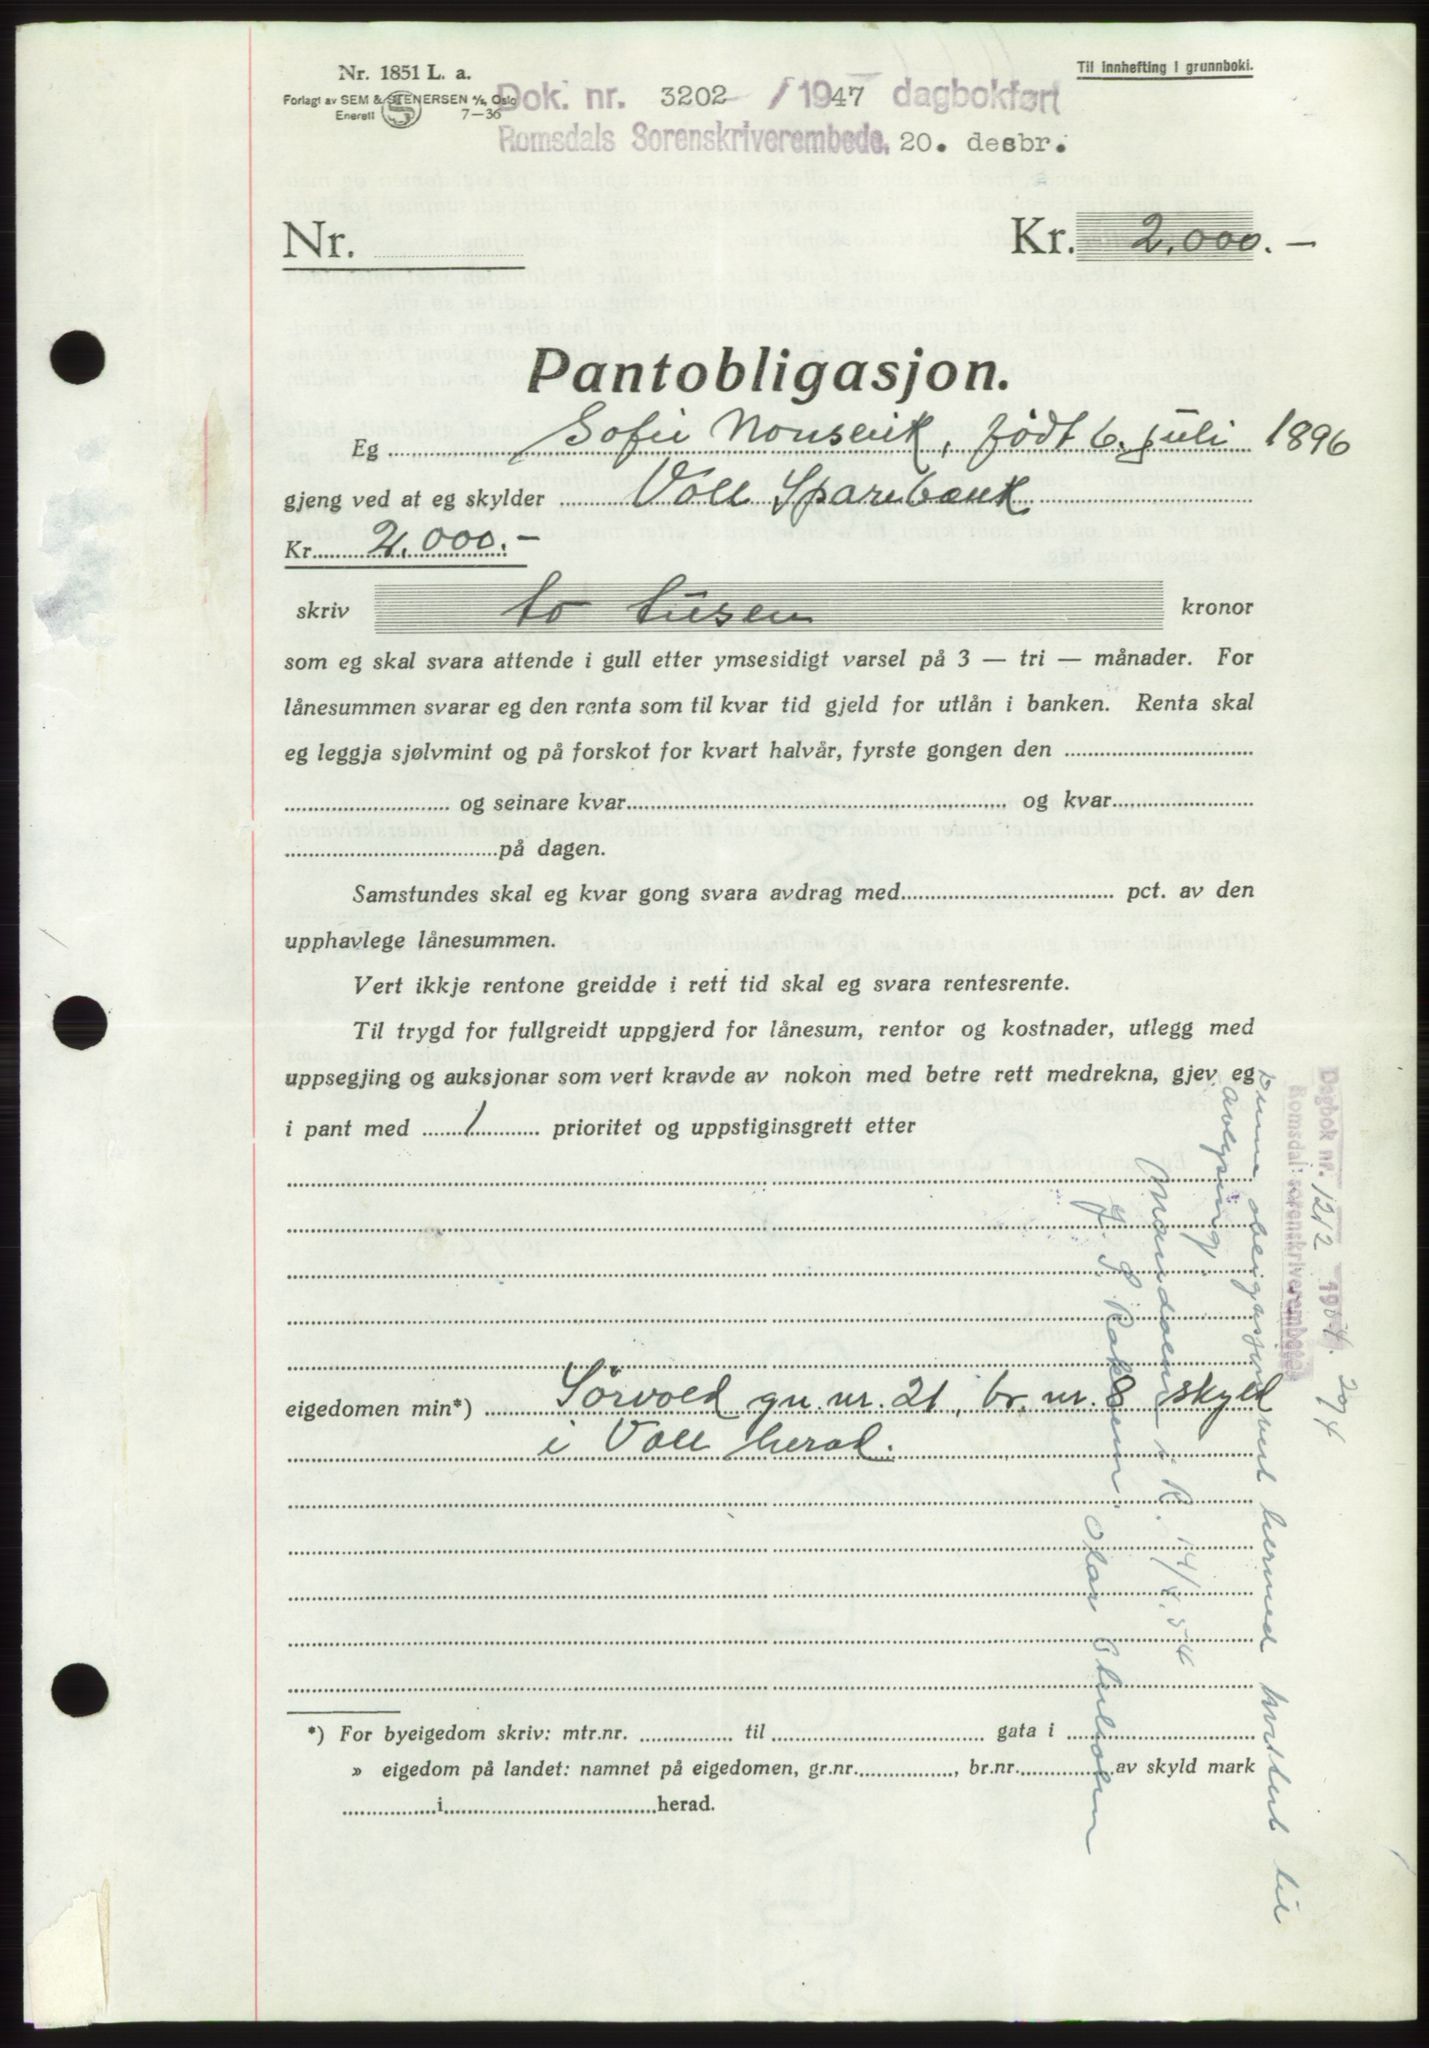 Nr. 1851 L. a.
Til innhefting i grunnboki.
Forlagt av SEM & STENERSEN A/S, Oslo
Enerett 7—36
Dok. nr. 3202 / 1947 dagbokført
Romsdals Sorenskriverembede, 20. desbr.
Nr.
Kr. 2.000.—
Pantobligasjon.
Eg Sofie Monsevik, født 6. juli 1896
gjeng ved at eg skylder Voll Sparebank
Kr. 2.000.—
skriv to tusen kronor
som eg skal svara attende i gull etter ymsesidigt varsel på 3 — tri — månader. For
lånesummen svarar eg den renta som til kvar tid gjeld for utlån i banken. Renta skal
eg leggja sjølvmint og på forskot for kvart halvår, fyrste gongen den
og seinare kvar og kvar
på dagen.
Samstundes skal eg kvar gong svara avdrag med pct. av den
upphavlege lånesummen.
Vert ikkje rentone greidde i rett tid skal eg svara rentesrente.
Til trygd for fullgreidt uppgjerd for lånesum, rentor og kostnader, utlegg med
uppsegjing og auksjonar som vert kravde av nokon med betre rett medrekna, gjev eg
i pant med 1 prioritet og uppstiginsgrett etter
eigedomen min*) Sörvold gn. nr. 21, br. nr. 8 skyld
i Voll herad.
*) For byeigedom skriv: mtr.nr. til gata i
» eigedom på landet: namnet på eigedomen, gr.nr. , br.nr. av skyld mark
i herad.
Dagbok nr. 1212 1954. 20/4
Romsdal sorenskriverembede
Denne obligasjon vert hermed kvittert til
avlysing.
i R. 14/4.54